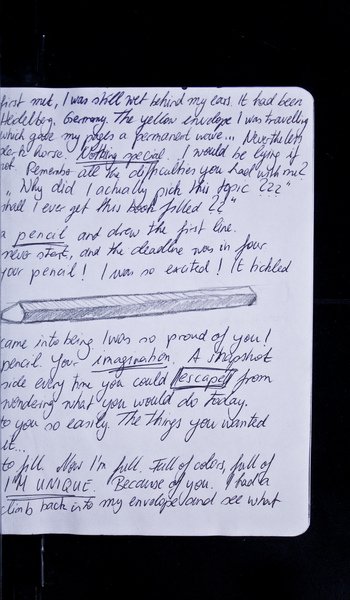 first met, I was still wet behind my ears. It had been
Heidelberg, Germany. The yellow envelope I was travelling
which gave my pages a permanent wave... Nevertheless
horse. Nothing special. I would be lying if
not. Remember all the difficulties you had with me?
"Why did I actually pick this topic ???"
shall I ever get this book filled ??"
a pencil and drew the first line.
new start, and the deadline was in four
your pencil! I was so excited! It tickled
came into being I was so proud of you!
pencil. Your imagination. A snapshot
side every time you could escape from
wondering what you would do today.
to you so easily. The things you wanted
it...
to fill. Now I'm full. Full of colors, full of
I'M UNIQUE. Because of you. I had a
climb back into my envelope and see what